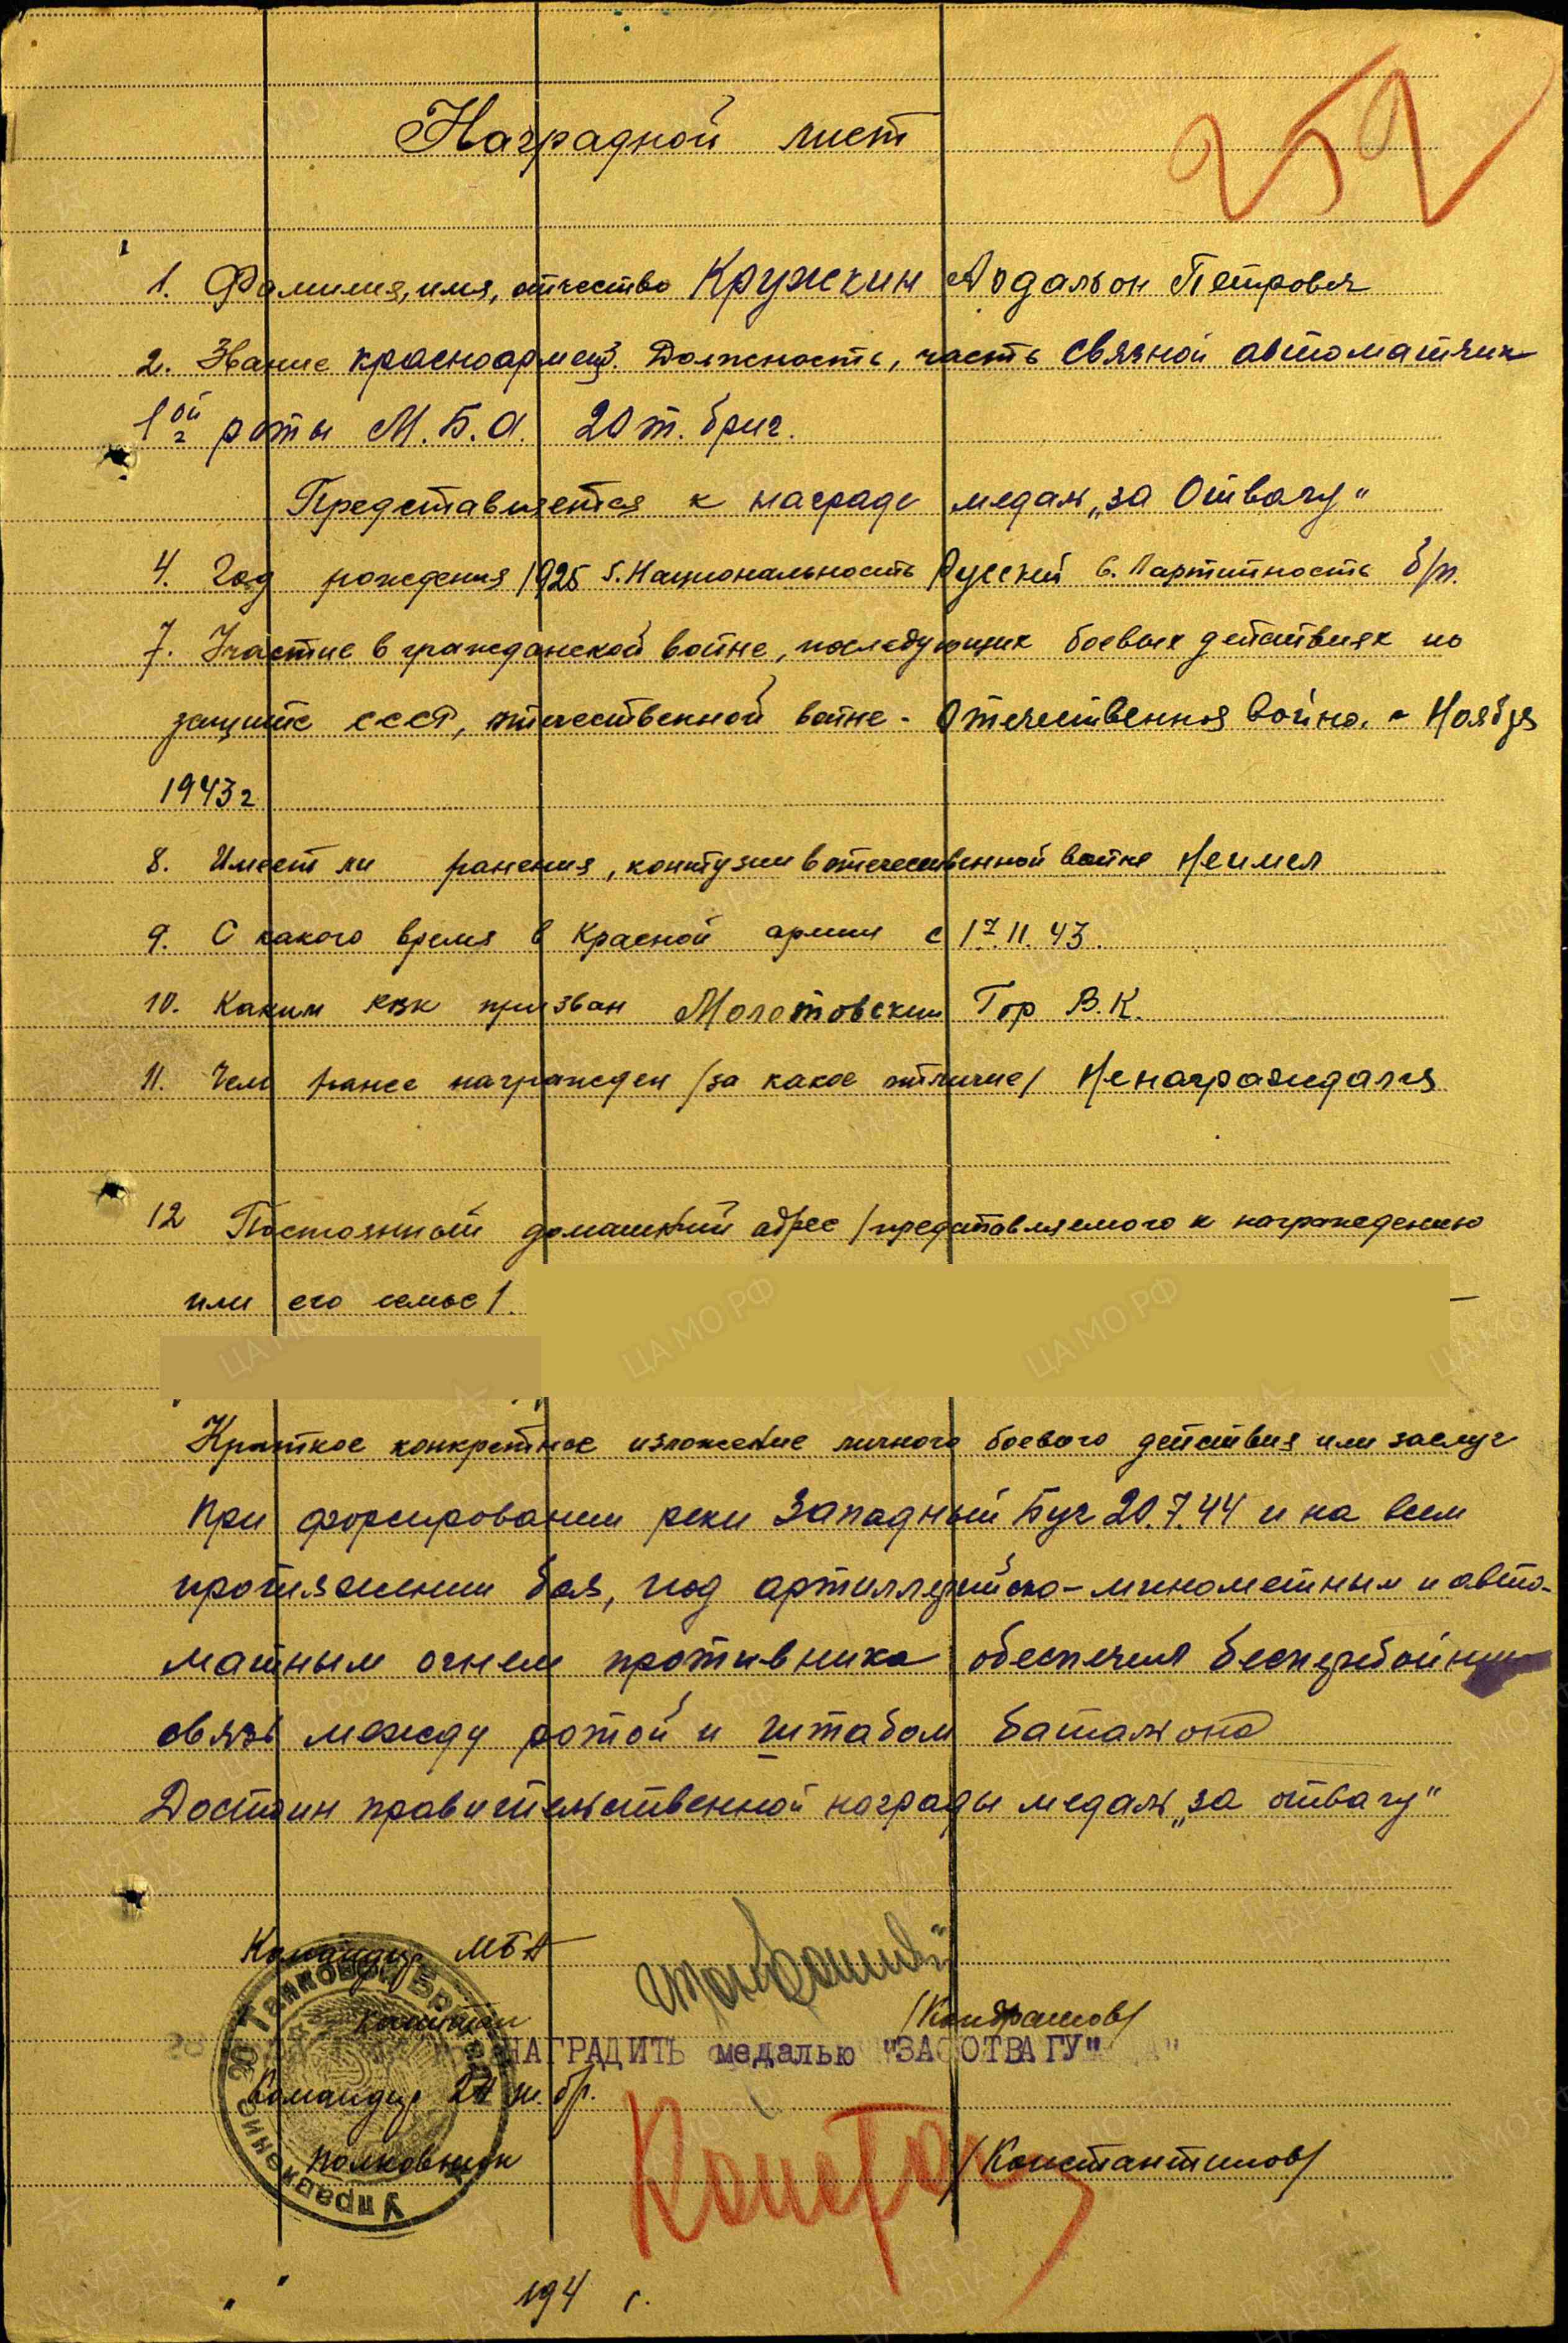 252
Наградной лист
1. Фамилия, имя, отчество Кружкин Ардальон Петрович
2. Звание красноармеец. Должность, часть связной автоматчик
1ой роты М.Б.А. 20 т. бриг.
Представляется к награде медаль „за Отвагу"
4. Год рождения 1925 5. Национальность Русский 6. Партитность б/п.
7. Участие в гражданской войне, последующих боевых действиях по
защите СССР, отечественной войне - Отечественная война. - Ноябрь
1943г
8. Имеет ли ранения, контузии в отечественной войне Неимел
9. С какого время в Красной армии с 17 11. 43.
10. Каким РВК призван Молотовским Гор В.К.
11. Чем ранее награжден /за какое отличие/ Ненаграждался
12 Постоянный домашний адрес /представляемого к награждению
или его семье/.
Краткое конкретное изложение личного боевого действия или заслуг
При форсировании реки Западный Буг 20.7.44 и на всем
протяжении боя, под артиллерийско-минометным и авто-
матным огнем противника обеспечил бесперебойную
связь между ротой и штабом баталиона
Достоин правительственной награды медаль „за отвагу"
Командир МБА
капитан /Кондрашов/
НАГРАДИТЬ медалью "ЗА ОТВАГУ"
Командир 20 т. бр.
полковник /Константинов/
20 Танковой Бригады
Управление
194 г.